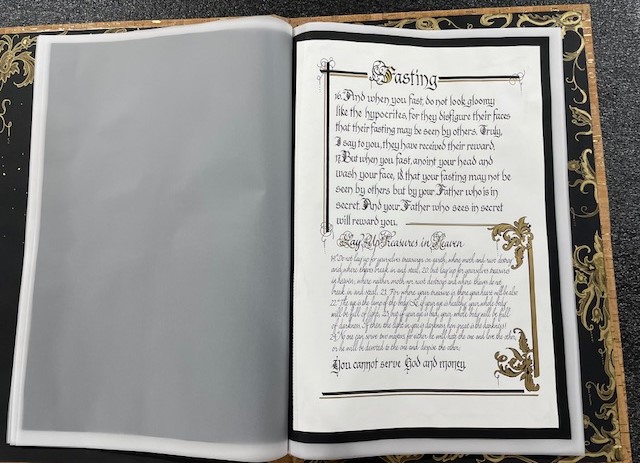 Fasting
16. And when you fast, do not look gloomy
like the hypocrites, for they disfigure their faces
that their fasting may be seen by others. Truly,
I say to you, they have received their reward.
17. But when you fast, anoint your head and
wash your face, 18 that your fasting may not be
seen by others but by your Father who is in
secret. And your Father who sees in secret
will reward you.
Lay Up Treasures in Heaven
19 Do not lay up for yourselves treasures on earth, where moth and rust destroy
and where thieves break in and steal, 20 but lay up for yourselves treasures
in heaven, where neither moth nor rust destroys and where thieves do not
break in and steal. 21. For where your treasure is, there your heart will be also
22. The eye is the lamp of the body. So, if your eye is healthy, your whole body
will be full of light, 23 but if your eye is bad, your whole body will be full
of darkness. If then the light in you is darkness, how great is the darkness!
24 No one can serve two masters, for either he will hate the one and love the other,
or he will be devoted to the one and despise the other.
You cannot serve God and money.